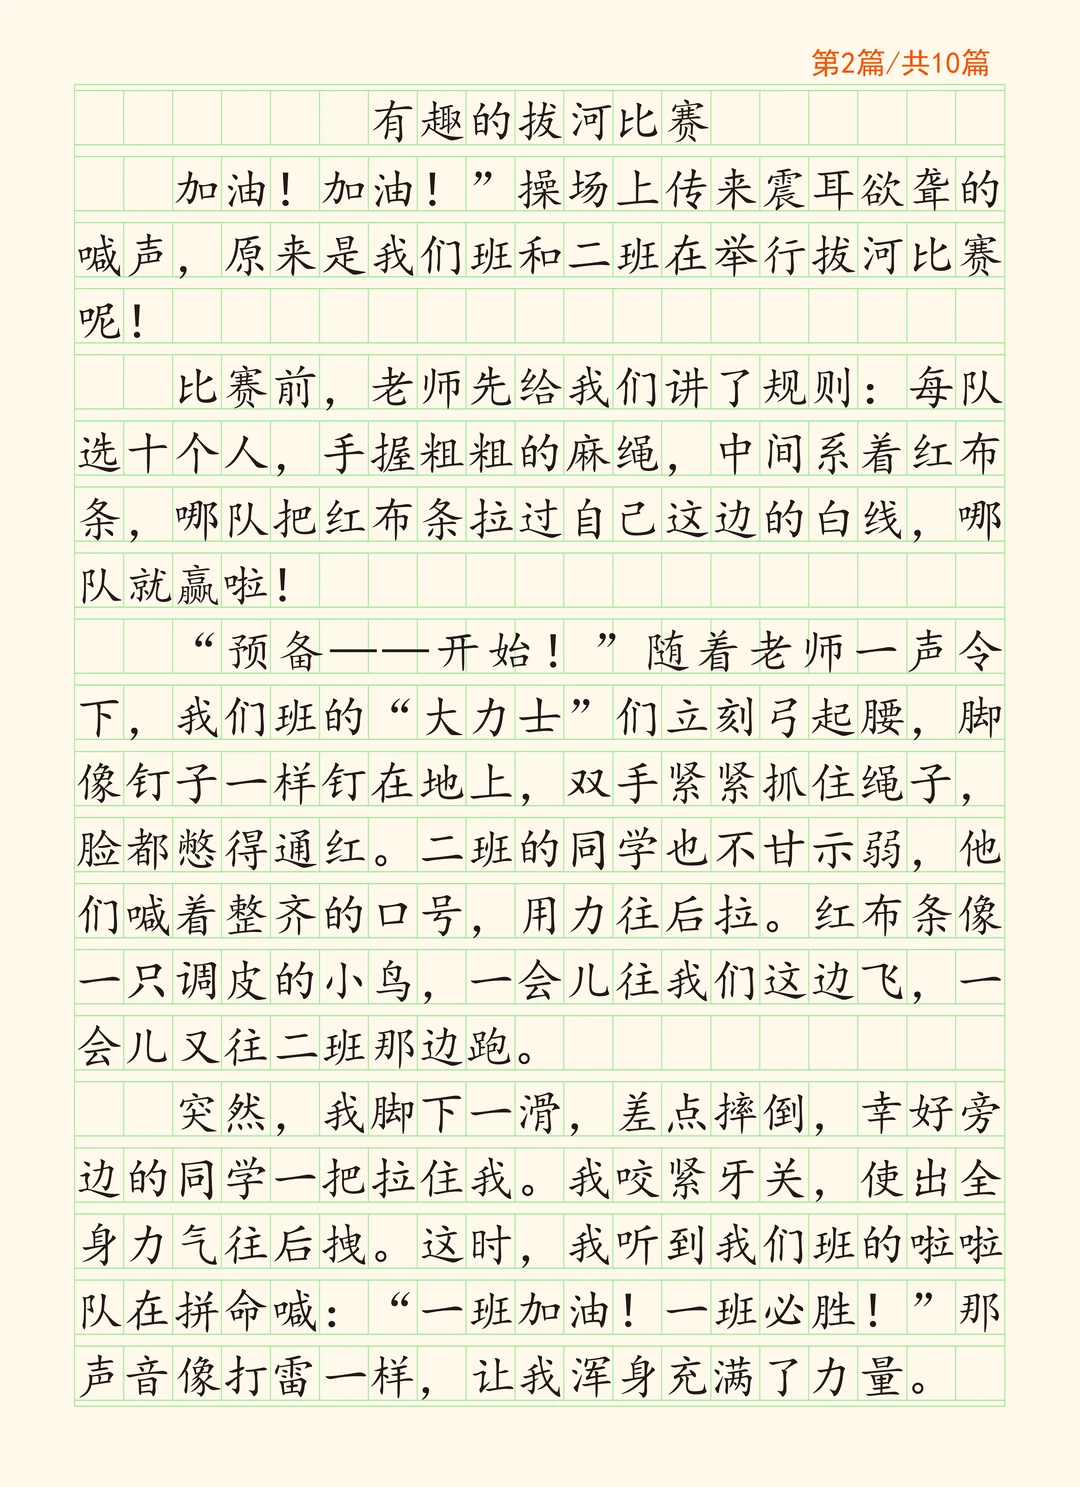 第2篇/共10篇
有趣的拔河比赛
加油！加油！”操场上传来震耳欲聋的
喊声，原来是我们班和二班在举行拔河比赛
呢！
比赛前，老师先给我们讲了规则：每队
选十个人，手握粗粗的麻绳，中间系着红布
条，哪队把红布条拉过自己这边的白线，哪
队就赢啦！
“预备——开始！”随着老师一声令
下，我们班的“大力士”们立刻弓起腰，脚
像钉子一样钉在地上，双手紧紧抓住绳子，
脸都憋得通红。二班的同学也不甘示弱，他
们喊着整齐的口号，用力往后拉。红布条像
一只调皮的小鸟，一会儿往我们这边飞，一
会儿又往二班那边跑。
突然，我脚下一滑，差点摔倒，幸好旁
边的同学一把拉住我。我咬紧牙关，使出全
身力气往后拽。这时，我听到我们班的啦啦
队在拼命喊：“一班加油！一班必胜！”那
声音像打雷一样，让我浑身充满了力量。